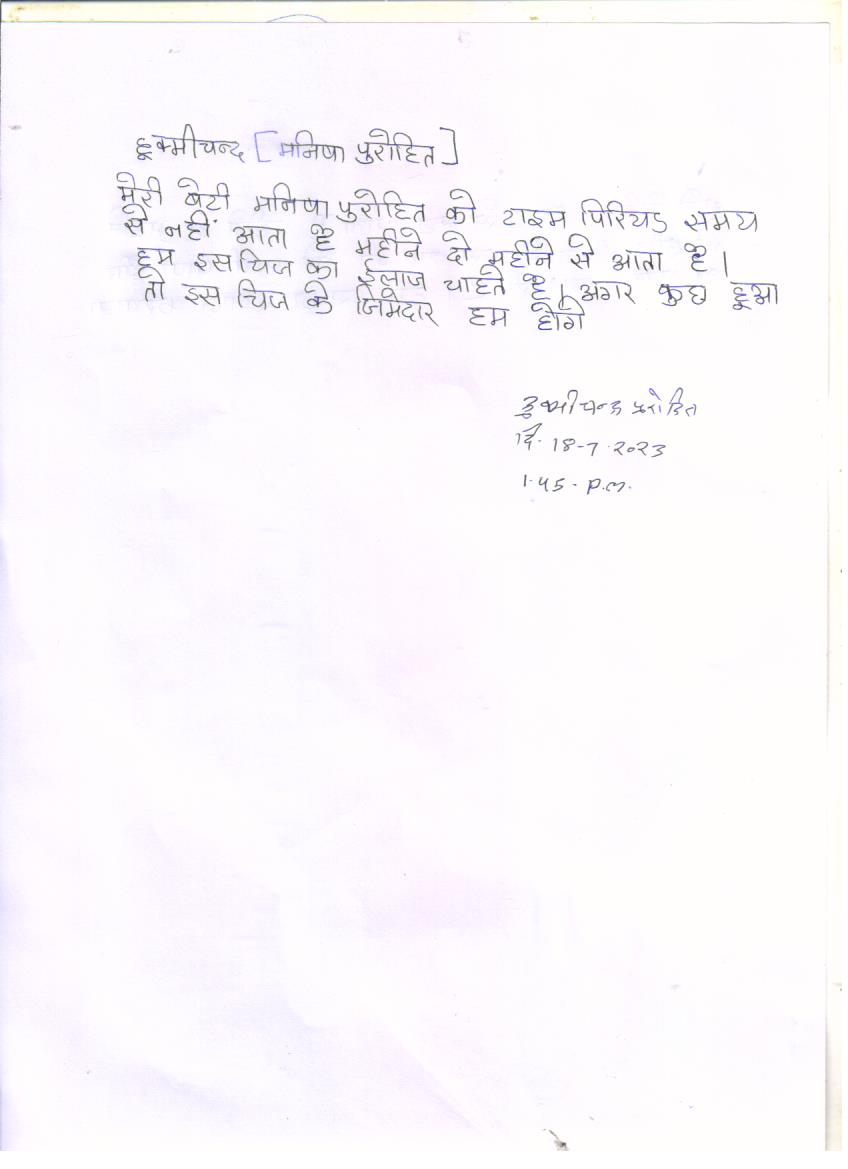 हूक्मीचन्द [मनिषा पुरोहित]
मेरी बेटी मनिषा पुरोहित को टाइम पिरियड समय
से नहीं आता है महीने दो महीने से आता है।
हम इस चिज का ईलाज चाहते है। अगर कुछ हूआ
तो इस चिज के जिमेदार हम होगें
हुक्मीचन्द पुरोहित
दि. 18-7-2023
1.45-p.m.